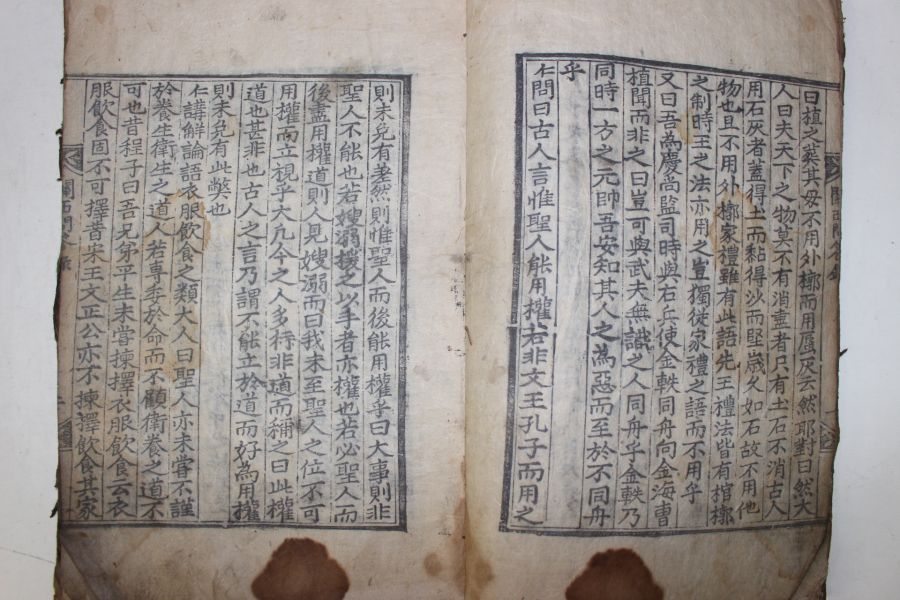 曰植之葬其母不用外槨而用灰云然耶對曰然大
人曰夫天下之物莫不有消盡者只有土石不消古人
用石灰者蓋得土而黏得沙而堅歲久如石故不用他
物也且不用外槨家禮雖有此語先王禮法皆有棺槨
之制時王之法亦用之豈獨從家禮之語而不用乎
又曰吾為慶尚監司時與右兵使金軼同舟向金海曺
植聞而非之曰豈可與武夫無識之人同舟乎金軼乃
同時一方之元帥吾安知其人之為惡而至於不同舟
乎
仁問曰古人言惟聖人能用權若非文王孔子而用之
則未免有差然則惟聖人而後能用權乎曰大事則非
聖人不能也若嫂溺援之以手者亦權也若必聖人而
後盡用權道則人見嫂溺而曰我未至聖人之位不可
用權而立視乎大凡今之人多行非道而稱之曰此權
道也甚非也古人之言乃謂不能立於道而好為用權
則未免有此弊也
仁講解論語衣服飲食之類大人曰聖人亦未嘗不謹
於養生衛生之道人若專委於命而不顧衛養之道不
可也昔程子曰吾兄弟平生未嘗揀擇衣服飲食云衣
服飲食固不可擇昔宋王文正公亦不揀擇飲食其家
關西問答錄
關西問